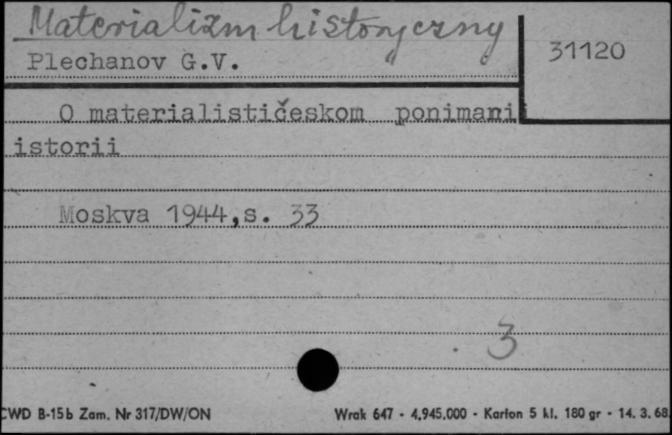 Materializm historyczny
31120
Plechanov G.V.
O materialističeskom ponimani
istorii
Moskva 1944,s. 33
3
CWD B-15b Zam. Nr 317/DW/ON
Wrak 647 - 4.945.000 - Karton 5 kl. 180 gr - 14. 3. 68.